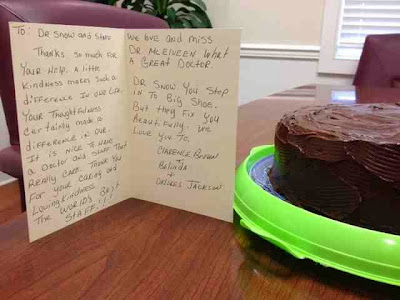 To: Dr Snow and Staff
Thanks so much for
Your Help. A little
Kindness makes such a
difference in our life.
Your Thoughtfulness
Certainly made a
difference in our.
It is nice to have
a Doctor and staff that
Really care. Thank you
For your caring and
Loving Kindness.
The World's Best
Staff!!!
We love and miss
Dr McElveen what
a great Doctor.
Dr Snow you step
in to Big Shoe.
But they fix you
Beautifully. We
Love you to.
Clarence Brown
Belinda
+
Delores Jackson